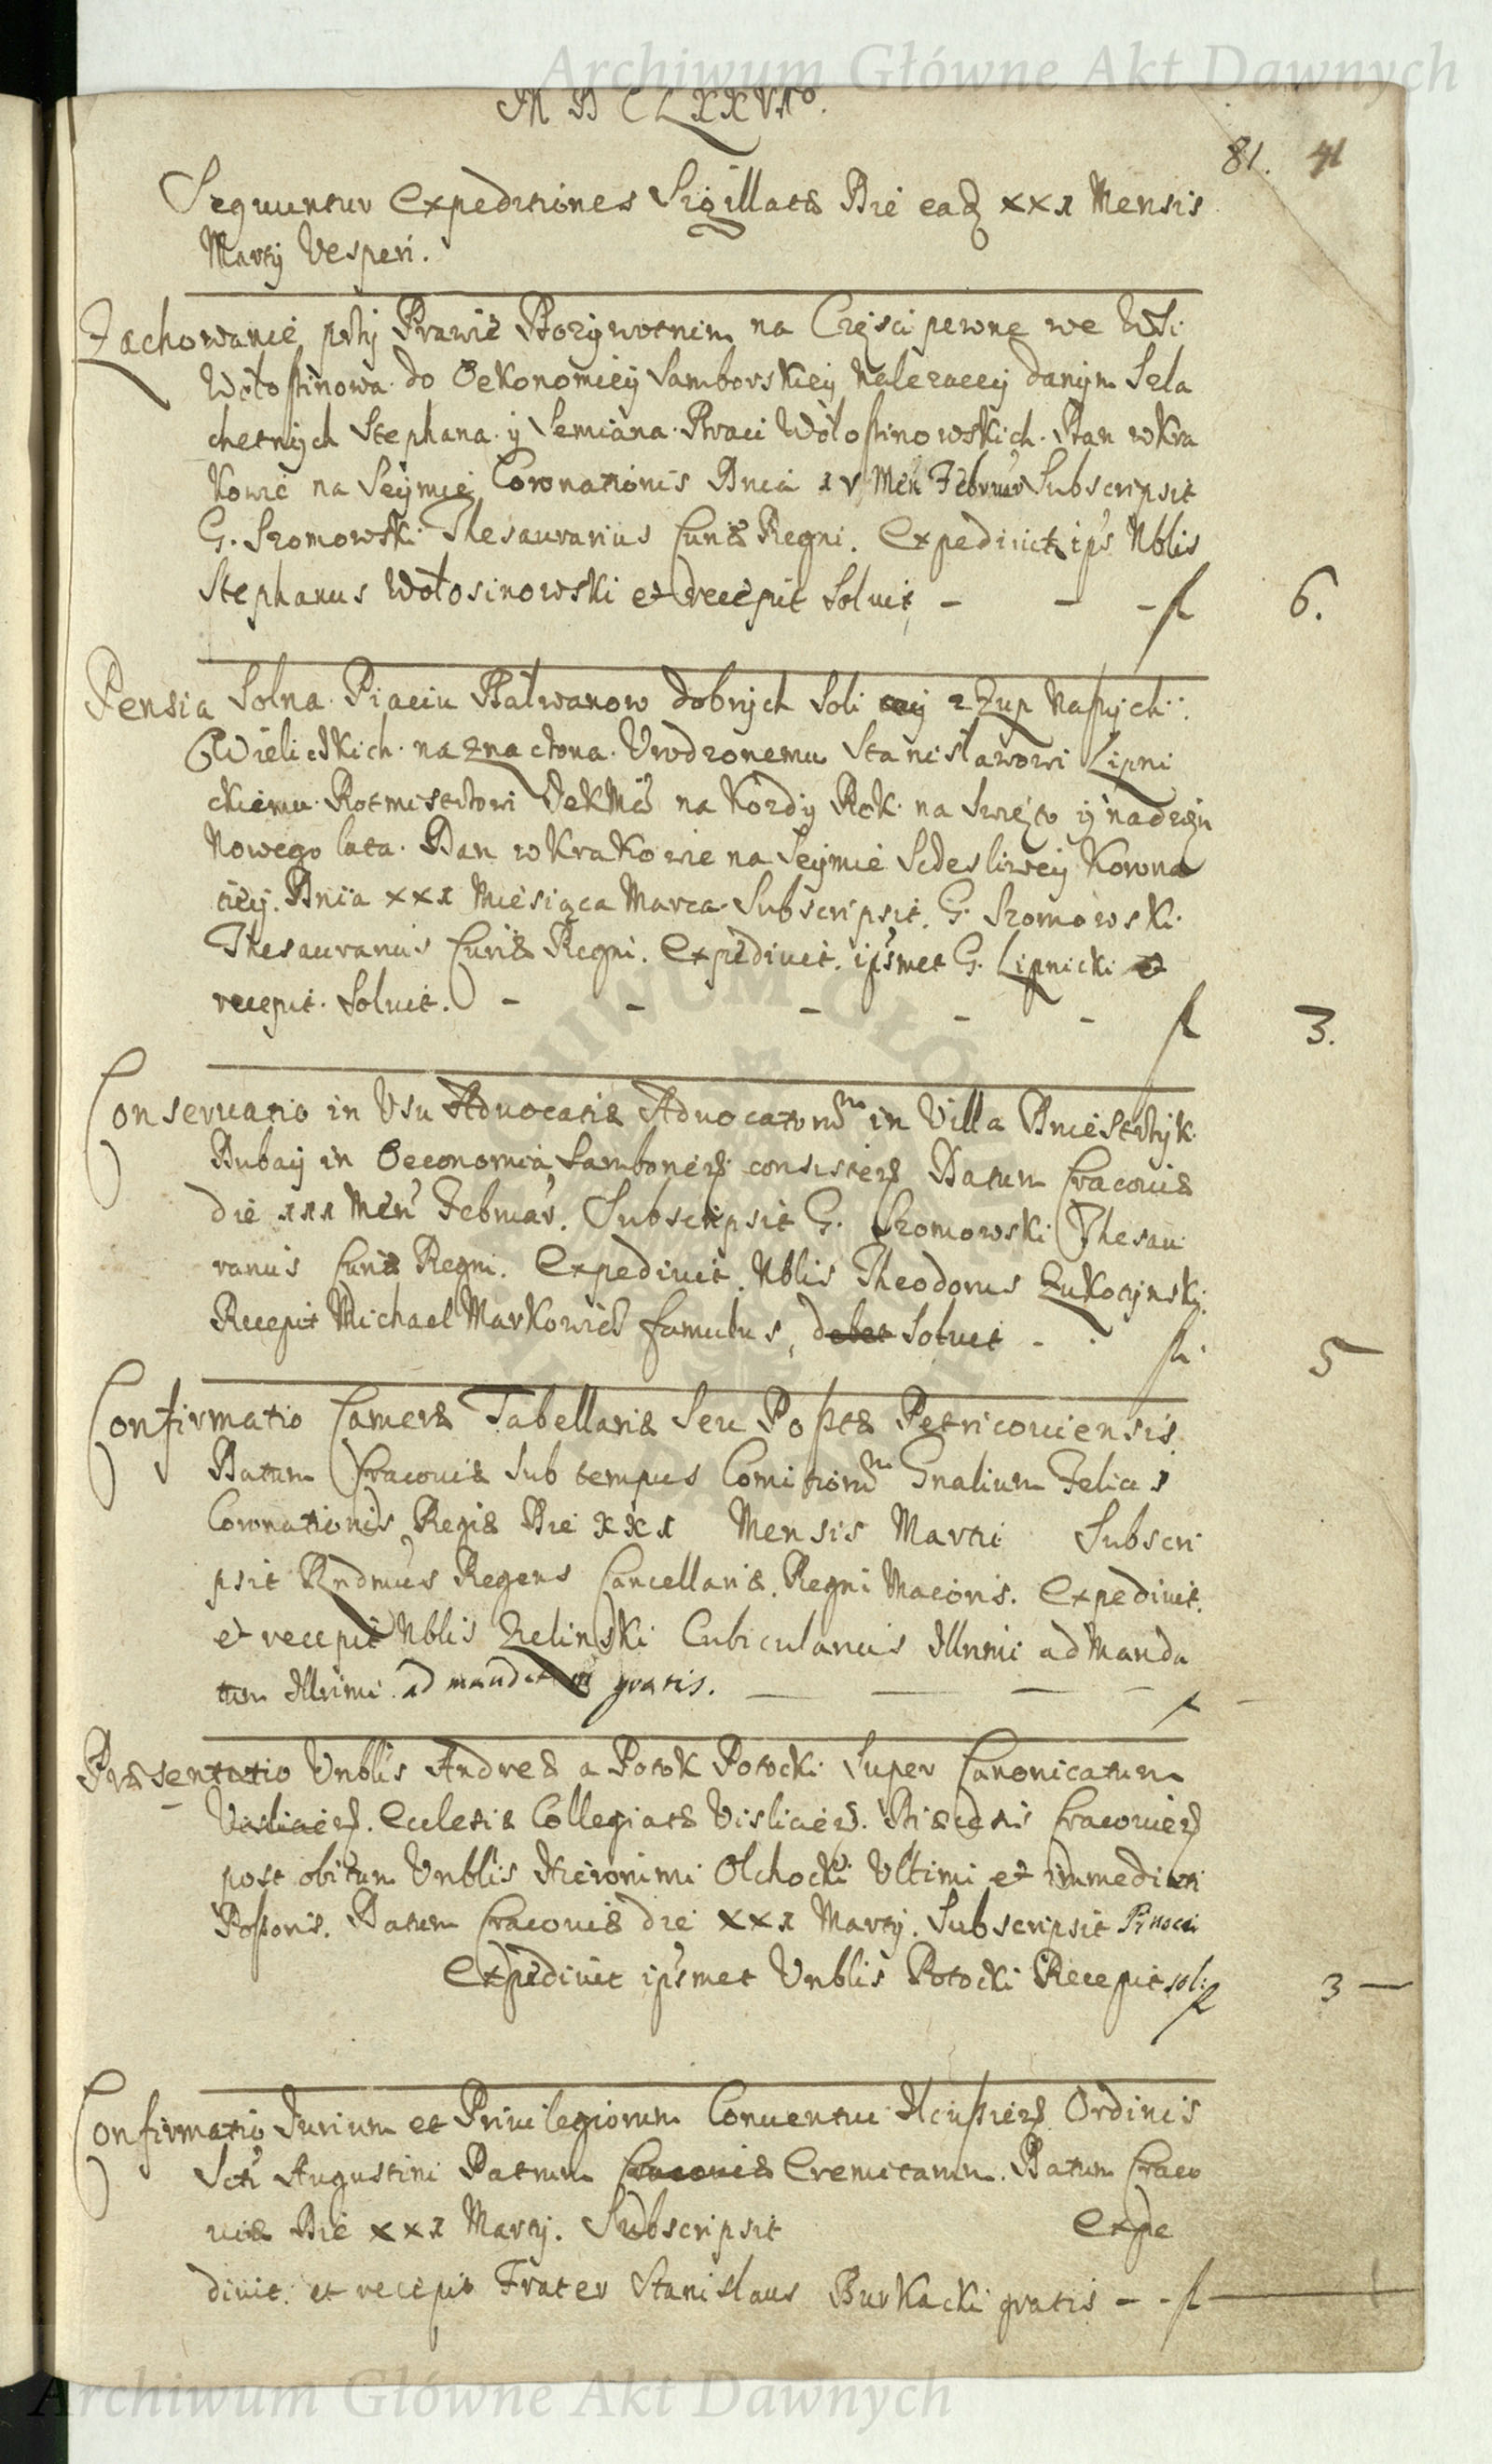 Archiwum Główne Akt Dawnych
M D C L X X V I to.
81. 41
Sequuntur Expeditiones Sigillatæ Die eadē xxx Mensis
Martij Vesperi.
Zachowanie przÿ Prawie Dozÿwotnim na Częsci pewne we Wsi
Wołoszinowa do Oekonomieÿ Samborskieÿ Nalezaceÿ danÿm Szla
chetnÿch Stephana ÿ Semiana Braci Wołoszinowskich. Dan w Kra
kowie na Seÿmie Coronationis Dnia 1v Men Februar Subscripsit
G. Szomowski Thesaurarius Curiæ Regni. Expediuit ips Nblis
Stephanus Wołosinowski et recepit Soluit, - - - fl 6.
Pensia Solna Piaciu Bałwanow dobrÿch Soli z Zup Naszÿch
Wielickich naznaczona Vrodzonemu Stanisławowi Lipni
ckiemu Rotmistrzowi JeKMci na Kozdÿ Rok na Swięto ÿ nadzęń
Nowego lata. Dan w Krakowie na Seÿmie Sczesliweÿ Korona
tieÿ. Dnia xxx Miesiąca Marca Subscripsit. G. Szomowski
Thesaurarius Curiæ Regni. Expediuit. ipsmet G. Lipnicki et
recepit. Soluit. - - - - - fl 3.
Conseruatio in Vsu Aduocatiæ Aduocatorum in Villa Dniestrzÿk
Dubaÿ in Oeconomia Samborien consisten Datum Cracouiæ
die 111 Men Februar. Subscripsit G. Szomowski Thesau
rarius Curiæ Regni. Expediuit. Nblis Theodorus Zukotÿnski.
Recepit Michael Markowicz famulus, debet Soluit - - fl. 5
Confirmatio Cameræ Tabellariæ Seu Posztæ Petricouiensis
Datum Cracouiæ Sub tempus Comitiorum Gnalium Felicis
Coronationis Regiæ Die xxx Mensis Martii Subscri
psit Rndmus Regens Cancellariæ Regni Maioris. Expediuit.
et recepit Nblis Zelinski Cubicularius Illrmi ad Manda
tum Illrimi ad mandat gratis. - - - - fl -
Præsentatio Vnblis Andreæ a Potok Potocki Super Canonicatum
Vislicien. Ecclesiæ Collegiatæ Vislicien. Diæcesis Cracouien
post obitum Vnblis Hieronimi Olchocki Vltimi et immediati
Possoris. Datum Cracouiæ die xxx Martij. Subscripsit Pinocci
Expediuit ipsmet Vnblis Potocki Recepit sol: fl 3 -
Confirmatio Jurium et Priuilegiorum Conuentui Ordinis
Scti Augustini Patrum Cracouiæ Eremitarum. Datum Craco
uiæ Die xxx Martij. Subscripsit Expe
diuit et recepit Frater Stanislaus Burkacki gratis - - fl
Archiwum Główne Akt Dawnych